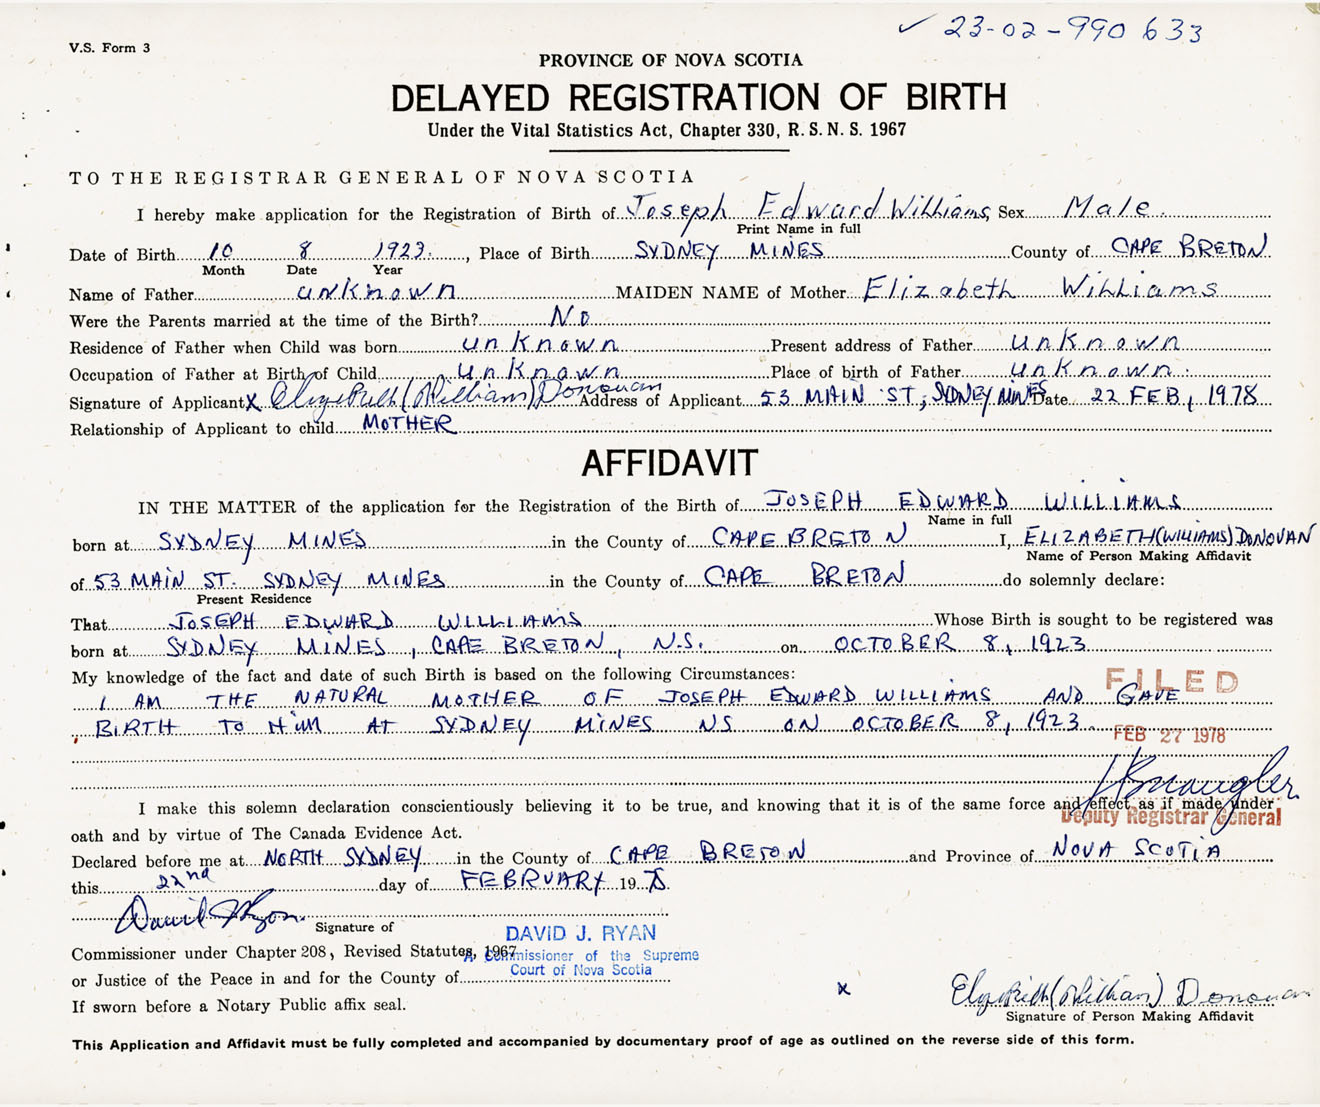 23-02-990633
V.S. Form 3
PROVINCE OF NOVA SCOTIA
DELAYED REGISTRATION OF BIRTH
Under the Vital Statistics Act, Chapter 330, R. S. N. S. 1967
TO THE REGISTRAR GENERAL OF NOVA SCOTIA
I hereby make application for the Registration of Birth of Joseph Edward Williams Sex Male
Print Name in full
Date of Birth 10 8 1923. , Place of Birth SYDNEY MINES County of CAPE BRETON
Month Date Year
Name of Father unknown MAIDEN NAME of Mother Elizabeth Williams
Were the Parents married at the time of the Birth? NO
Residence of Father when Child was born unknown Present address of Father unknown
Occupation of Father at Birth of Child unknown Place of birth of Father unknown.
Signature of Applicant X Elizabeth (Williams) Donovan Address of Applicant 53 MAIN ST, SYDNEY MINES Date 22 FEB, 1978
Relationship of Applicant to child MOTHER
AFFIDAVIT
IN THE MATTER of the application for the Registration of the Birth of JOSEPH EDWARD WILLIAMS
Name in full
born at SYDNEY MINES in the County of CAPE BRETON I, ELIZABETH (WILLIAMS) DONOVAN
Name of Person Making Affidavit
of 53 MAIN ST. SYDNEY MINES in the County of CAPE BRETON do solemnly declare:
Present Residence
That JOSEPH EDWARD WILLIAMS Whose Birth is sought to be registered was
born at SYDNEY MINES, CAPE BRETON, N.S. on OCTOBER 8, 1923
My knowledge of the fact and date of such Birth is based on the following Circumstances:
FILED
I AM THE NATURAL MOTHER OF JOSEPH EDWARD WILLIAMS AND GAVE
BIRTH TO HIM AT SYDNEY MINES NS ON OCTOBER 8, 1923.
FEB 27 1978
I make this solemn declaration conscientiously believing it to be true, and knowing that it is of the same force and effect as if made under
Deputy Registrar General
oath and by virtue of The Canada Evidence Act.
Declared before me at NORTH SYDNEY in the County of CAPE BRETON and Province of NOVA SCOTIA
this 22nd day of FEBRUARY 1978.
David J Ryan
Signature of
DAVID J. RYAN
Commissioner under Chapter 208, Revised Statutes, 1967
A Commissioner of the Supreme
Court of Nova Scotia
or Justice of the Peace in and for the County of
If sworn before a Notary Public affix seal.
x Elizabeth (William) Donovan
Signature of Person Making Affidavit
This Application and Affidavit must be fully completed and accompanied by documentary proof of age as outlined on the reverse side of this form.